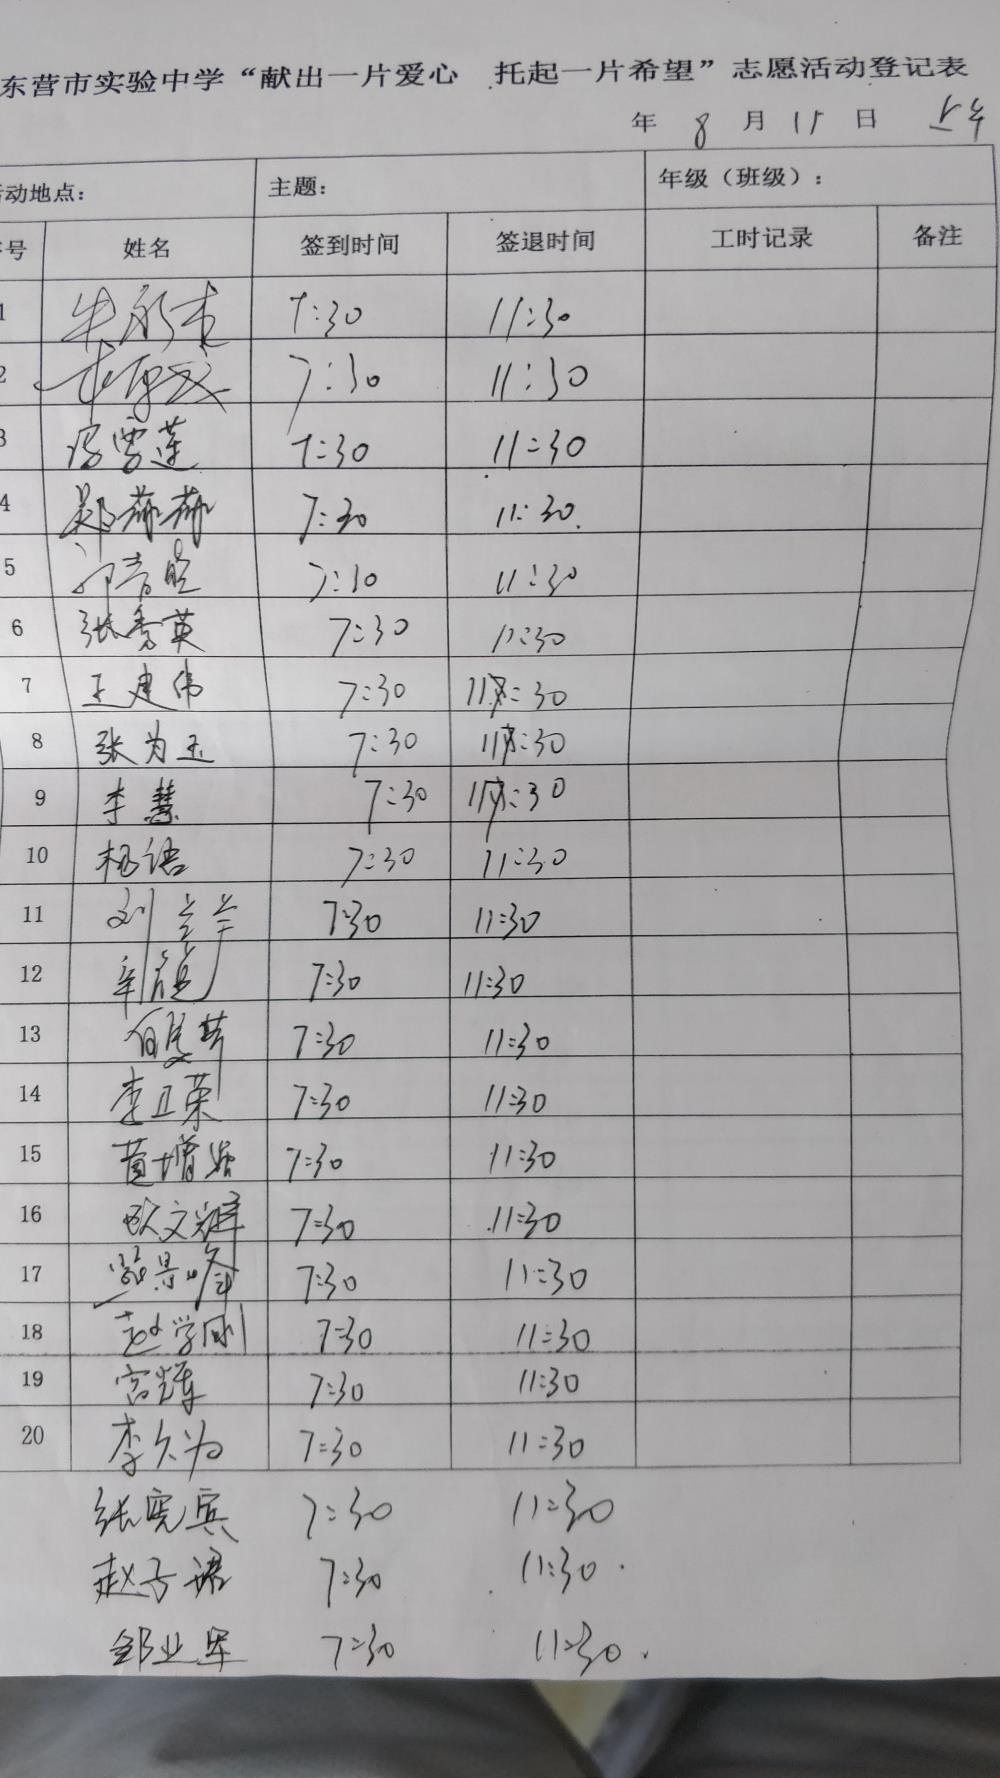 东营市实验中学“献出一片爱心 托起一片希望”志愿活动登记表
年 8 月 15 日 上午
活动地点： 主题： 年级（班级）：
序号 姓名 签到时间 签退时间 工时记录 备注
1 7:30 11:30
2 7:30 11:30
3 雪莲 7:30 11:30
4 郑赫赫 7:30 11:30
5 7:30 11:30
6 张秀英 7:30 11:30
7 王建伟 7:30 11:30
8 张为玉 7:30 11:30
9 李慧 7:30 11:30
10 杨语 7:30 11:30
11 刘兰兰 7:30 11:30
12 7:30 11:30
13 7:30 11:30
14 李卫荣 7:30 11:30
15 7:30 11:30
16 欧文辉 7:30 11:30
17 景峰 7:30 11:30
18 赵学刚 7:30 11:30
19 宫辉 7:30 11:30
20 李久为 7:30 11:30
张宪宾 7:30 11:30
赵子诺 7:30 11:30
邹业军 7:30 11:30